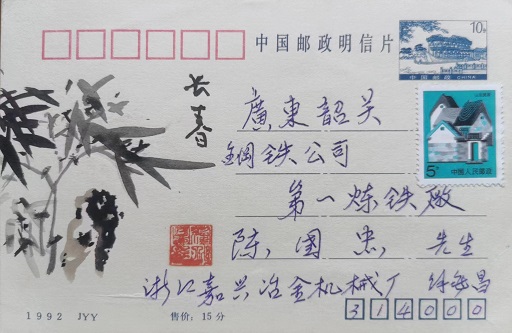 中国邮政明信片
10分
中国邮政 CHINA
长春
5分
中国人民邮政
廣東韶关
鋼铁公司
第一炼铁廠
陈,國忠, 先生
浙江嘉兴冶金机械厂
314000
1992 JYY
售价:15分